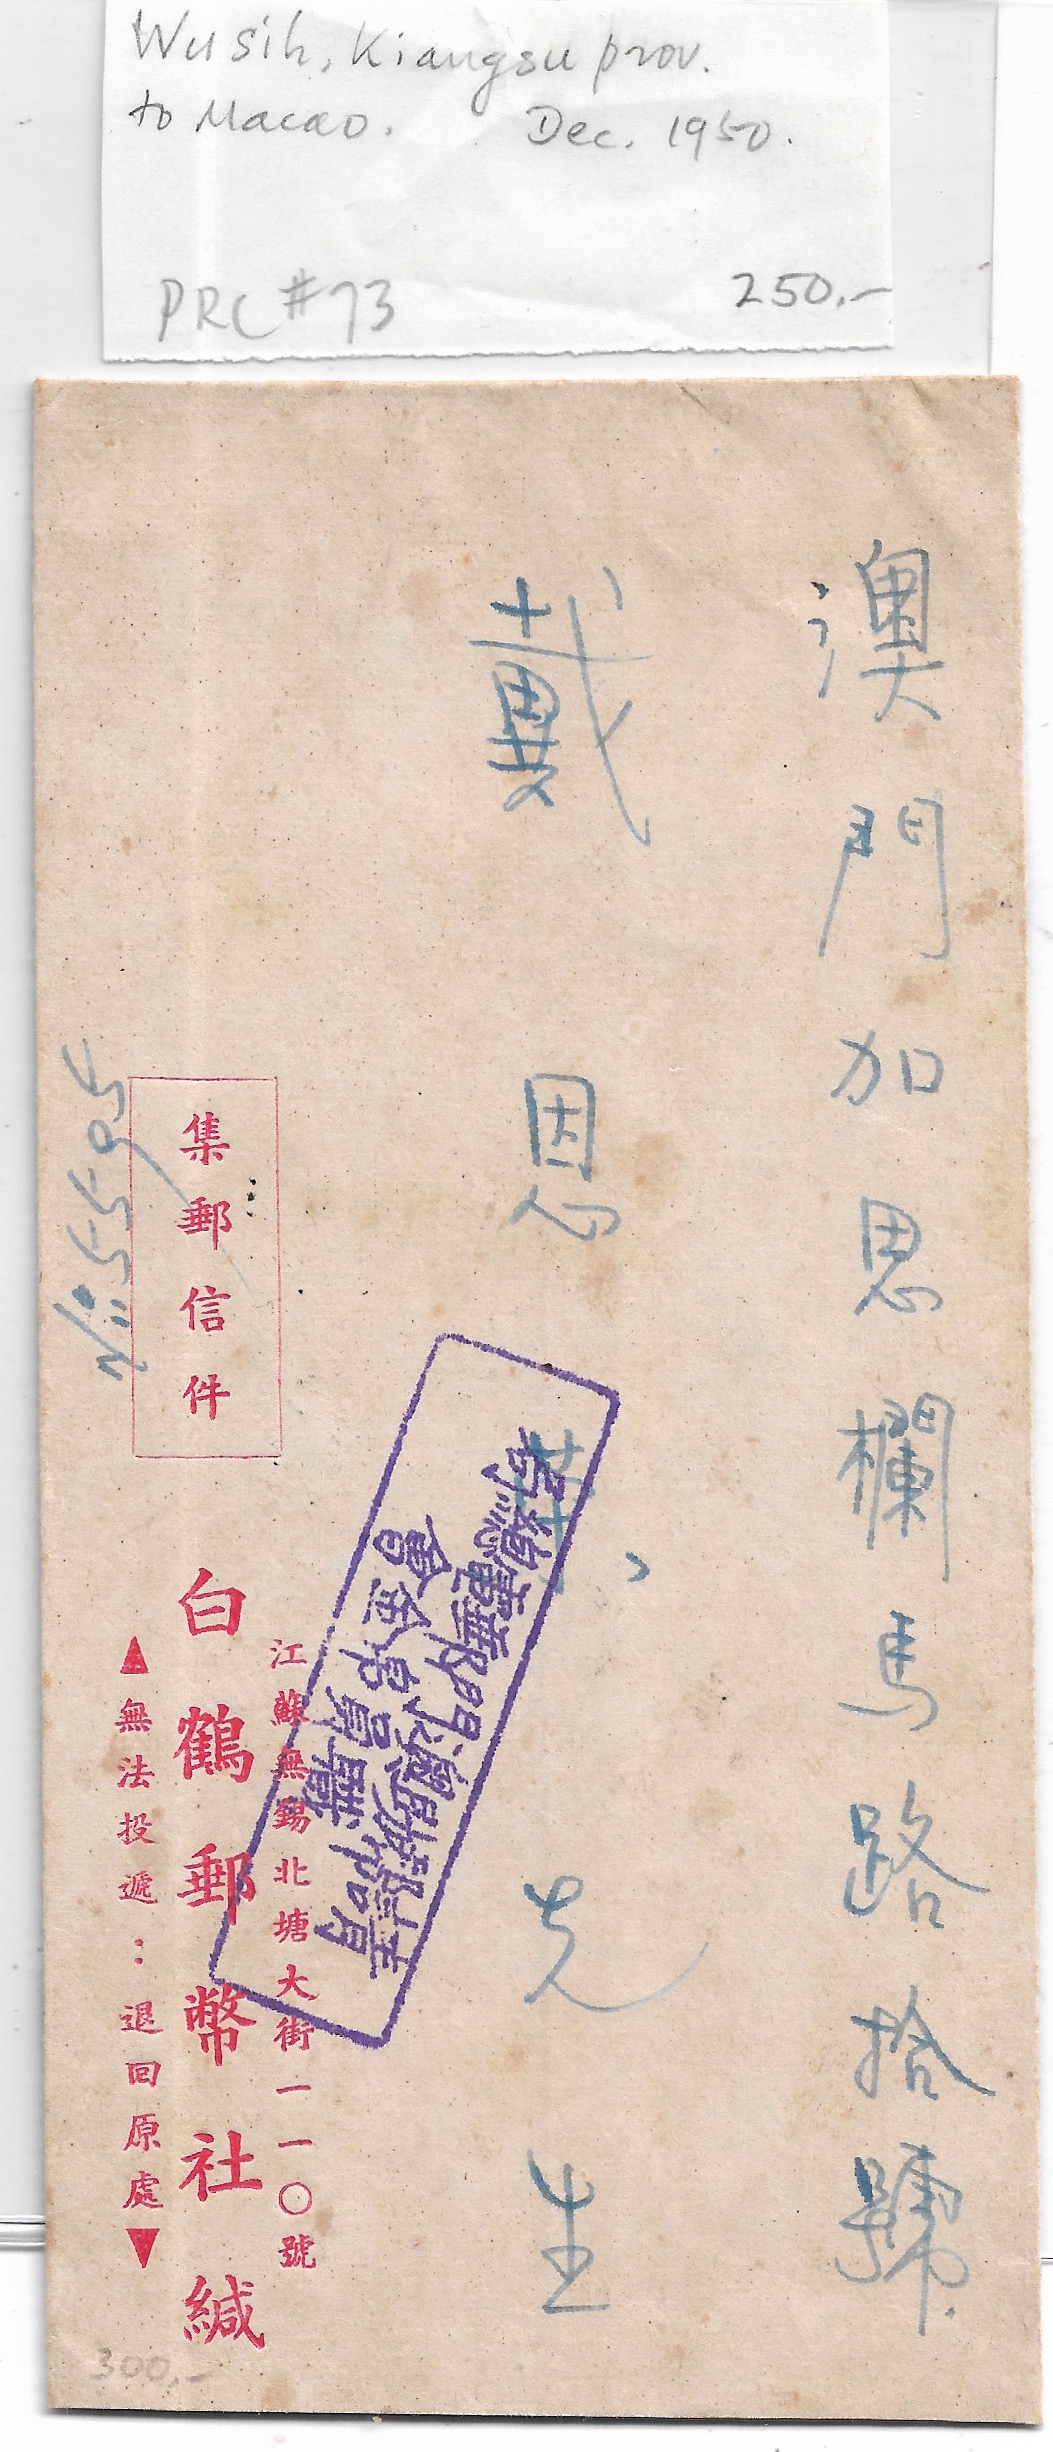 Wusih, Kiangsu prov.
to Macao. Dec. 1950.
PRC #73 250.-
澳門加思欄馬路拾號
戴恩荣先生
集郵信件
江蘇無錫北塘大街一一〇號
白鶴郵幣社緘
▲無法投遞：退回原處▼
300.-